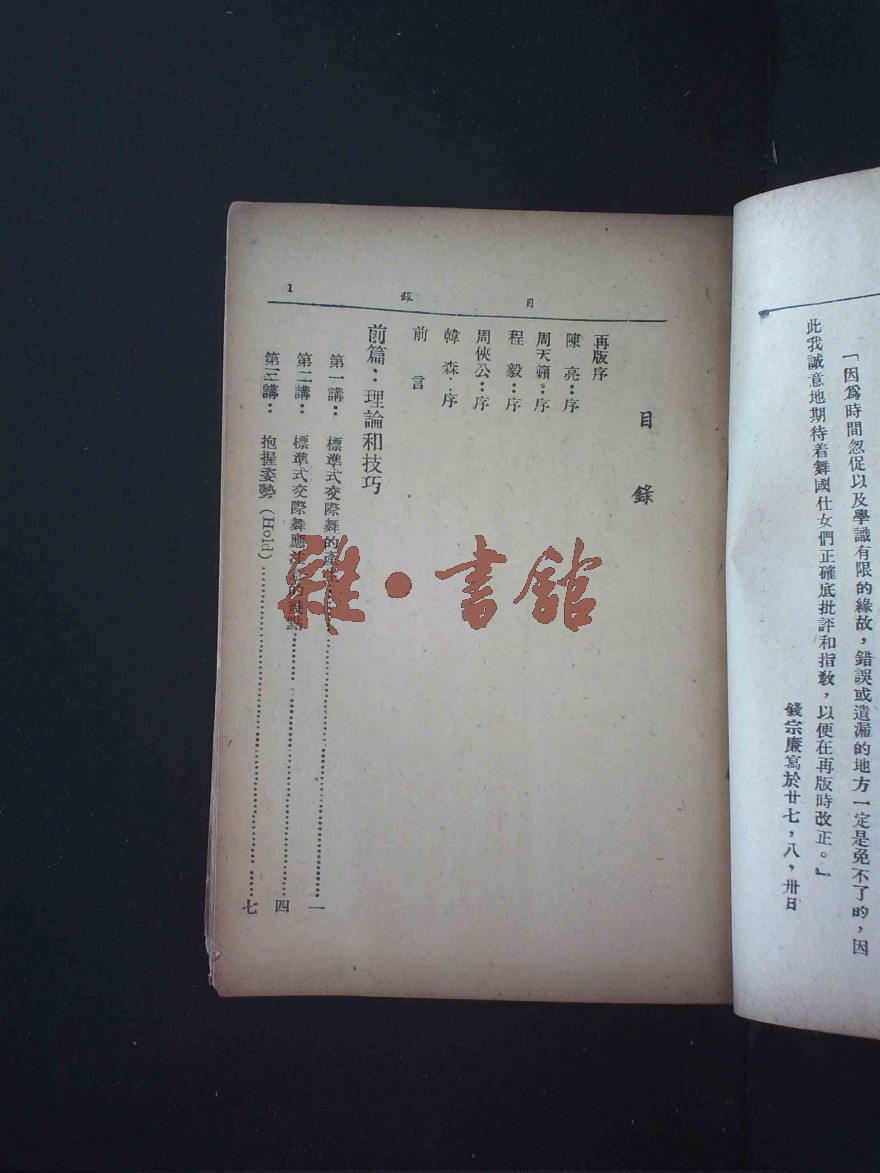 「因爲時間忽促以及學識有限的緣故，錯誤或遺漏的地方一定是免不了的，因
此我誠意地期待着舞國仕女們正確底批評和指教，以便在再版時改正。」
錢宗廉寫於廿七，八，卅日
目　錄
1
目　錄
再版序
陳　亮：序
周天籟：序
程　毅：序
周俠公：序
韓　森：序
前　言
前篇：理論和技巧
第一講：　標準式交際舞的產生……一
第二講：　標準式交際舞應注意的幾點……四
第三講：　抱握姿勢（Hold）……七
雜・書館